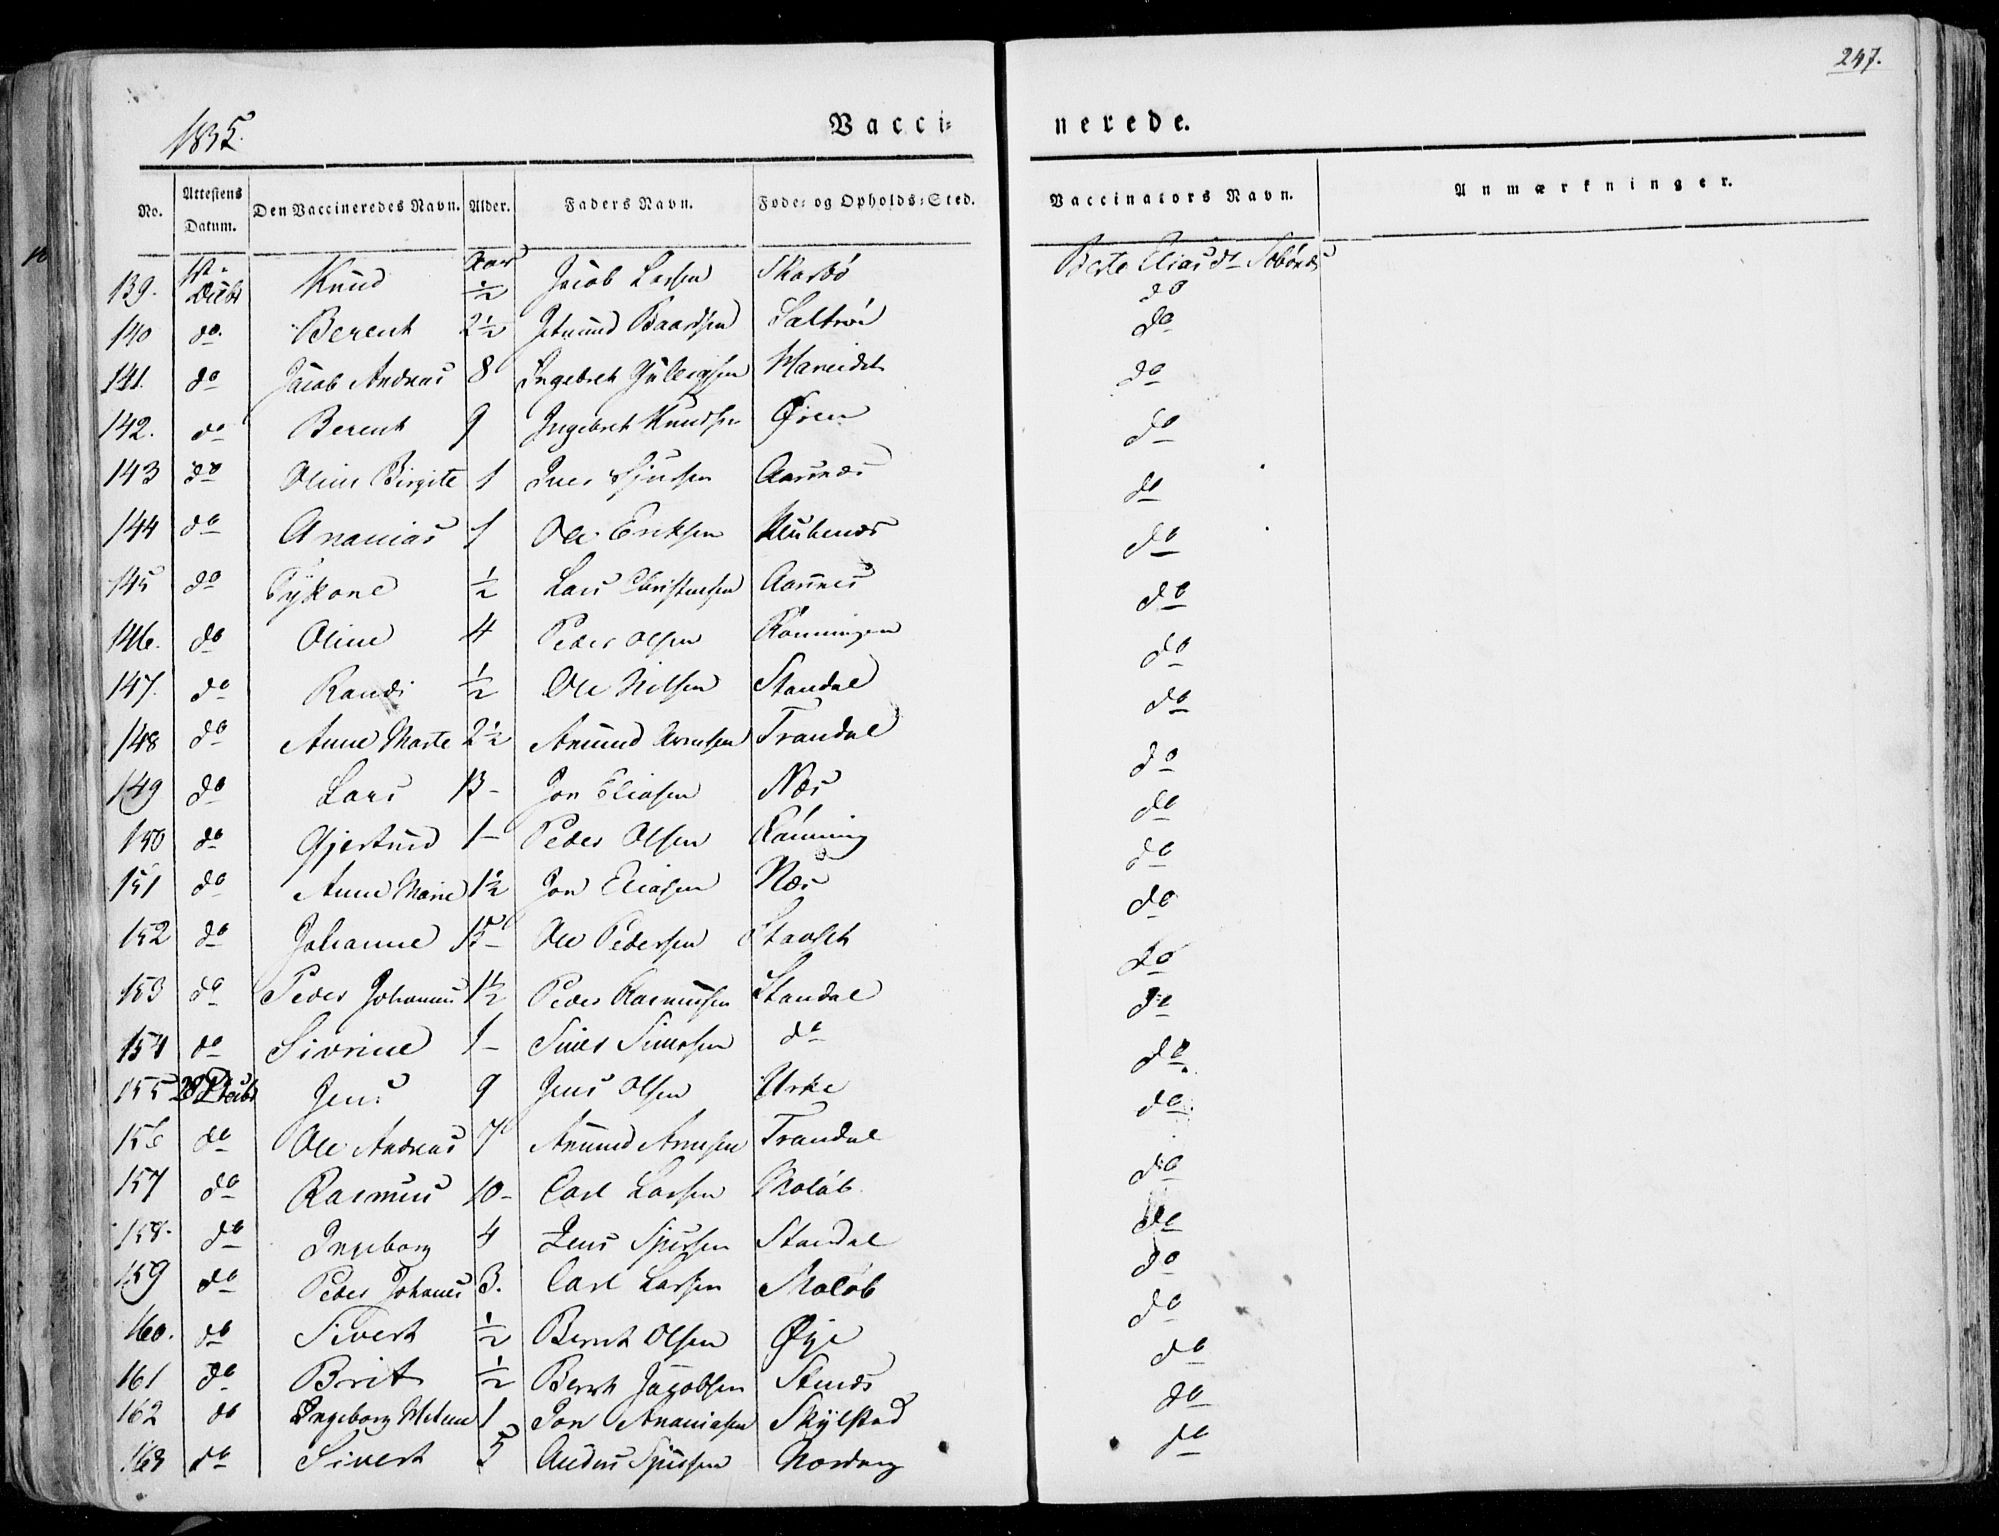 247.
1835.
Vacci= nerede.
No. Attestens Datum. Den Vaccineredes Navn. Alder. Faders Navn. Føde= og Opholds=Sted. Vaccinators Navn. Anmærkninger.
Aar
139. 1ste Decbr Knud ½ Jacob Larsen Skarbø Berte Eliasdr
do
140 do. Berent 2½ Baardsen do
141. do Jacob Andreas 8 Ingebret do
142. do Berent 9 Ingebret Knudsen Øren do
143 do Oline Birgite 1 Iver Sjursen Aarsnæs do
144 do Ananias 1 Ole Eriksen Klubenæs do
145 do ½ Lars Christensen Aarsnes do
146. do Oline 4 Peder Olsen Rønningen do
147. do Randi ½ Ole Nilsen Standal do
148 do Anne Marte 2½ Amund Arnesen Trandal do
149 do Lars 13- Jon Eliasen Næs do
150 do Gjertrud 1- Peder Olsen Rønning do
151 do Anne Marie 1½ Jon Eliasen Næs do
152 do Johanne Ole Pedersen do
153 do Peder Johannes 1½ Peder Rasmussen Standal do
154 do Sivrine 1- Simen Simesen do do
155 28 Decbr Jens 9 Jens Olsen Urke do
156 do Ole Andreas 7 Amund Arnesen Trandal do
157 do Rasmus 10- Carl Larsen Moløb do
158. do Ingeborg 4 Jens Sjursen Standal do
159 do Peder Johanes 3. Carl Larsen Moløb do
160. do Sivert ½ Bernt Olsen Øye do
161 do Brit ½ Bernt Jacobsen Stenes do
162 do Ingeborg 1 Jon Ananiasen Skylstad do
163 do Sivert 5 Anders Sjursen Nordang do